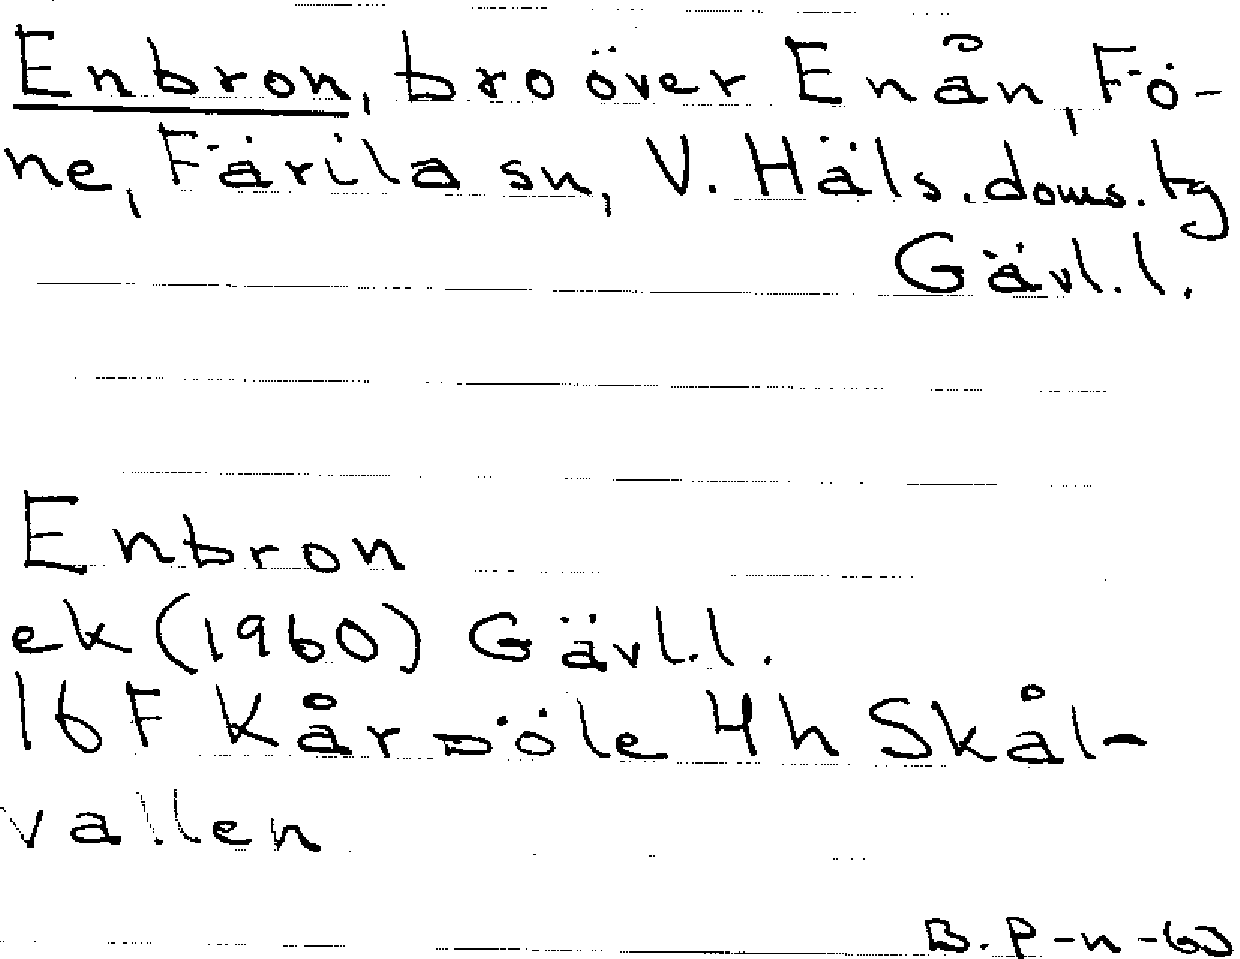 Enbron, bro över Enån, Fö-
ne, Färila sn, V. Häls. doms. tg
Gävl. l.
Enbron
ek (1960) Gävl. l.
16 F Kårböle 4h Skål-
vallen
B. P-n -60